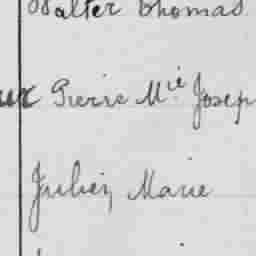 Walter Thomas
Pierre Mie Josep
Julien Marie